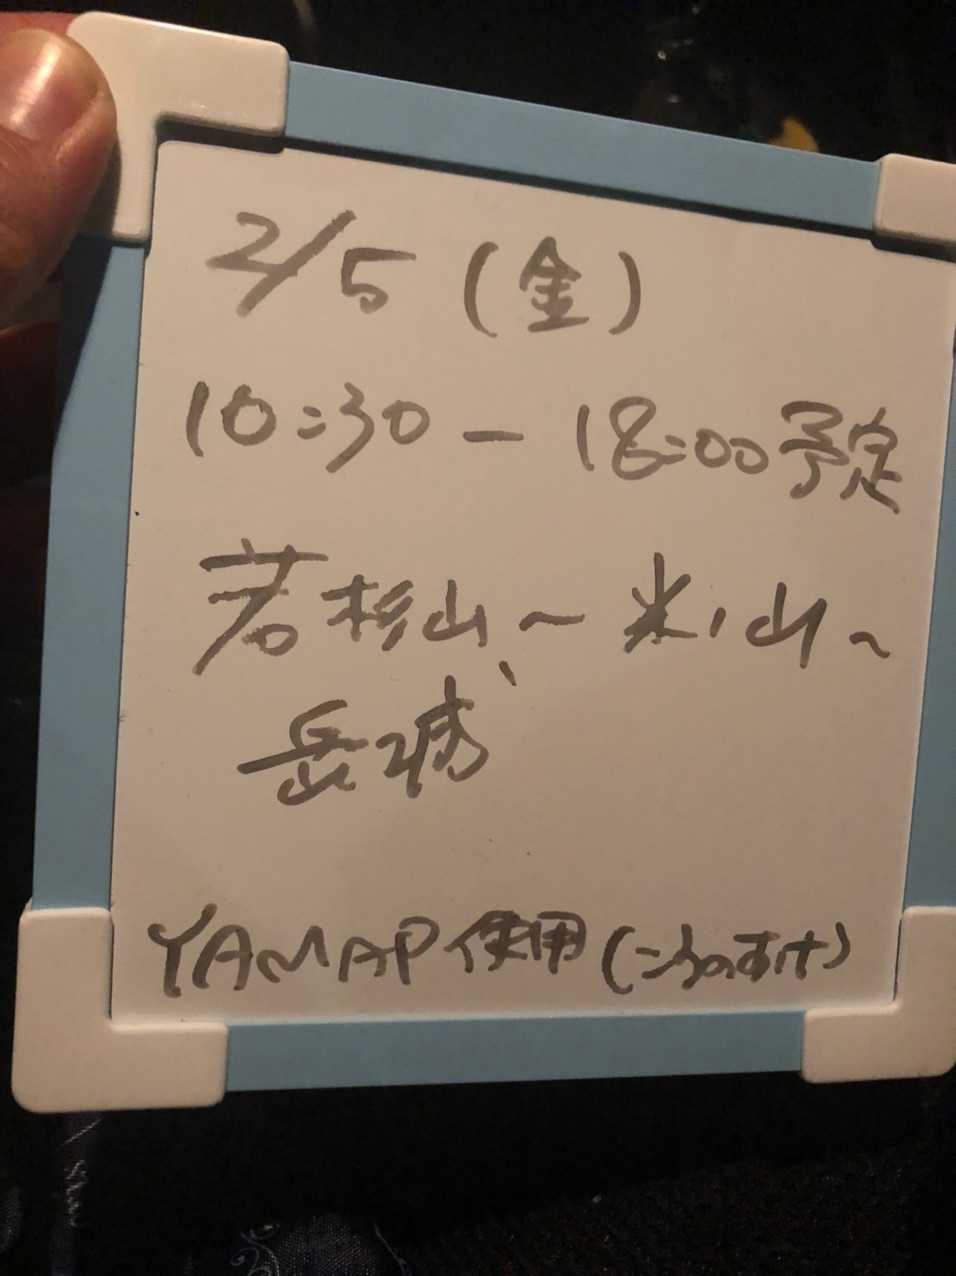 2/5(金)
10:30-18:00予定
若杉山~米ノ山~
岳城
YAMAP使用(ころのすけ)